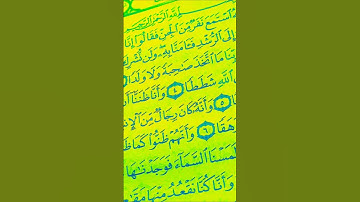 اللَّهِ الرَّحْمَٰنِ الرَّحِيمِ
اسْتَمَعَ نَفَرٌ مِّنَ الْجِنِّ فَقَالُوا إِنَّا
إِلَى الرُّشْدِ فَآمَنَّا بِهِ ۖ وَلَن نُّشْرِكَ
مَا اتَّخَذَ صَاحِبَةً وَلَا وَلَدًا
اللَّهِ شَطَطًا ٤ وَأَنَّا ظَنَنَّا
٥ وَأَنَّهُ كَانَ رِجَالٌ مِّنَ
رَهَقًا ٦ وَأَنَّهُمْ ظَنُّوا كَمَا
لَمَسْنَا السَّمَاءَ فَوَجَدْنَاهَا
وَأَنَّا كُنَّا نَقْعُدُ مِنْهَا